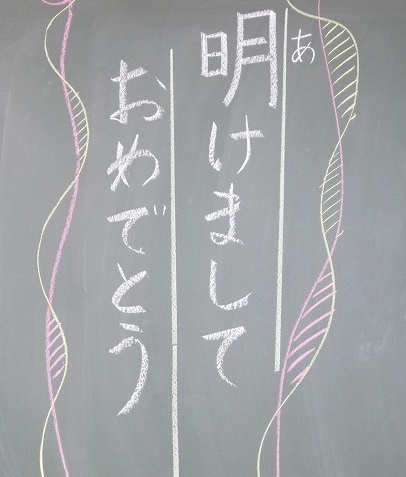 明けまして
あ
おめでとう